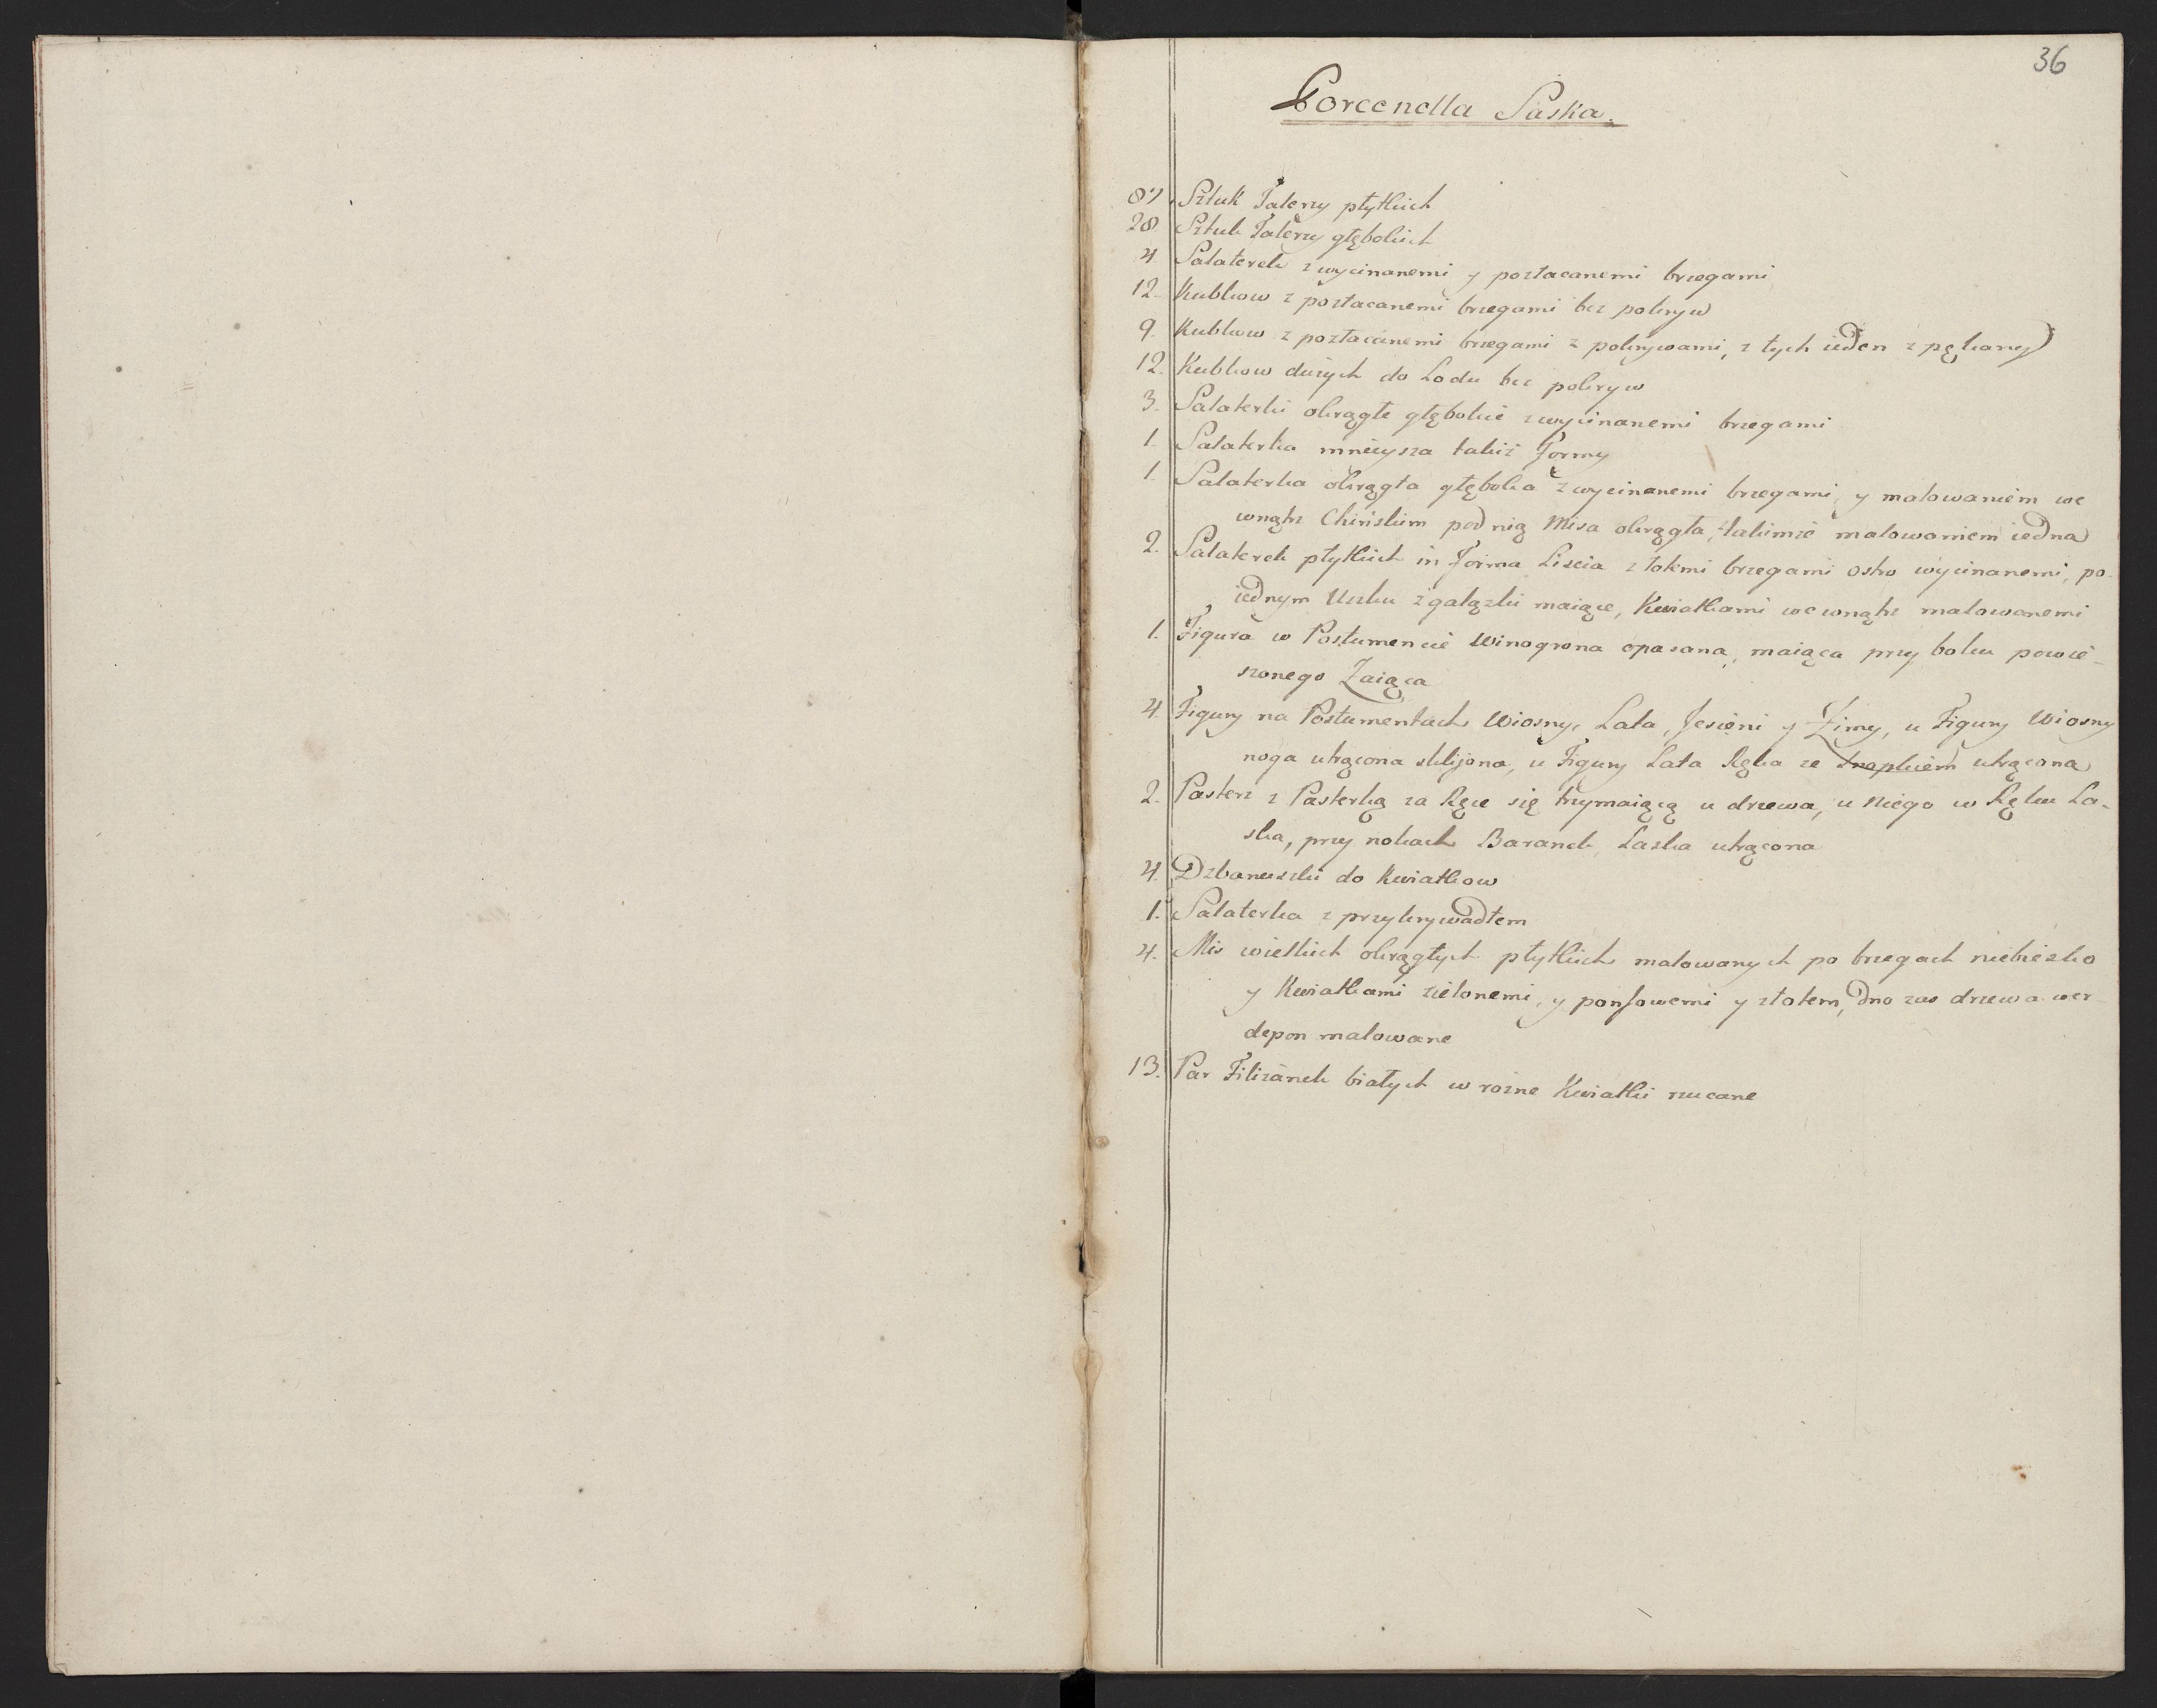 36
Porcenella Saska.
87 Sztuk Talerzy płytkich
28 Sztuk Talerzy głębokich
4 Salaterek z wycinanemi y pozłacanemi brzegami
12 Kubkow z pozłacanemi brzegami bez pokryw
9. Kubkow z pozłacanemi brzegami z pokrywami, z tych ieden z pękany
12. Kubkow dużych do Lodu bez pokryw
3. Salaterki okrągłe głębokie z wycinanemi brzegami
1. Salaterka mnieysza takiż Formy
1. Salaterka okrągła głęboka z wycinanemi brzegami, y malowaniem we
wnątrz Chińskim pod nią Misa okrągła, takimże malowaniem iedna
2. Salaterek płytkich in Forma Liscia z łokmi brzegami ostro wycinanemi, po
iednym Uszku z gałązki maiące, Kwiatkami wewnątrz malowanemi
1. Figura w Postumencie Winogrona opasana, maiąca przy boku powie-
szonego Zaiąca
4. Figury na Postumentach Wiosny, Lata, Jesieni y Zimy, u Figury Wiosny
noga utrącona sklijona, u Figury Lata Ręka ze Snopkiem utrącona
2. Pasterz z Pasterką za Ręce się trzymaiącą u drzewa, u Niego w Ręku La-
ska, przy nokach Baranek, Laska utrącona
4. Dzbanuszki do Kwiatkow
1. Salaterka z przykrywadłem
4. Mis wielkich okrągłych płytkich malowanych po brzegach niebiesko
y Kwiatkami zielonemi, y ponsowemi y złotem, dno zas drzewa wer
depon malowane
13. Par Filiżanek białych w rożne Kwiatki rzucane